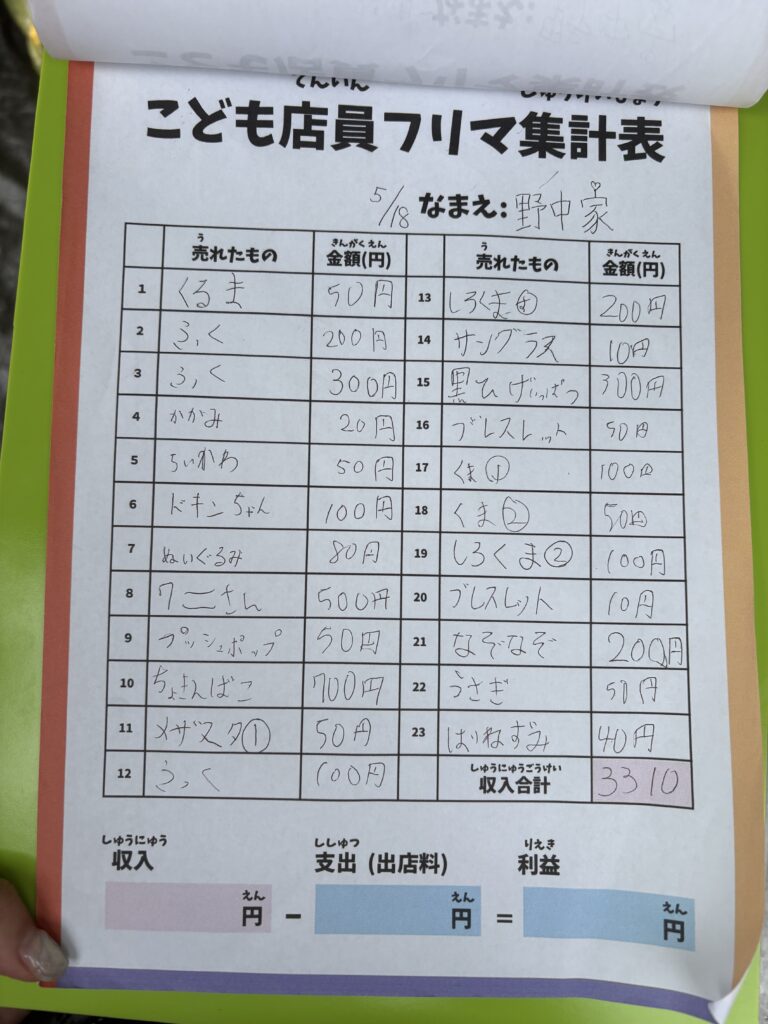 てんいん
こども店員フリマ集計表
5/18 なまえ: 野中家
う 売れたもの きんがくえん 金額(円) う 売れたもの きんがくえん 金額(円)
1 くるま 50円 13 しろくま 200円
2 ふく 200円 14 サングラス 10円
3 ふく 300円 15 黒ひげいっぱつ 300円
4 かがみ 20円 16 ブレスレット 50円
5 ちいかわ 50円 17 くま① 100円
6 ドキンちゃん 100円 18 くま② 50円
7 ぬいぐるみ 80円 19 しろくま② 100円
8 ワニさん 500円 20 ブレスレット 10円
9 プッシュポップ 50円 21 なぞなぞ 200円
10 ちょきんばこ 700円 22 うさぎ 50円
11 メザスタ① 50円 23 はりねずみ 40円
12 ふく 100円 しゅうにゅうごうけい 収入合計 3310
しゅうにゅう ししゅつ りえき
収入 支出 (出店料) 利益
えん えん えん
円 - 円 = 円